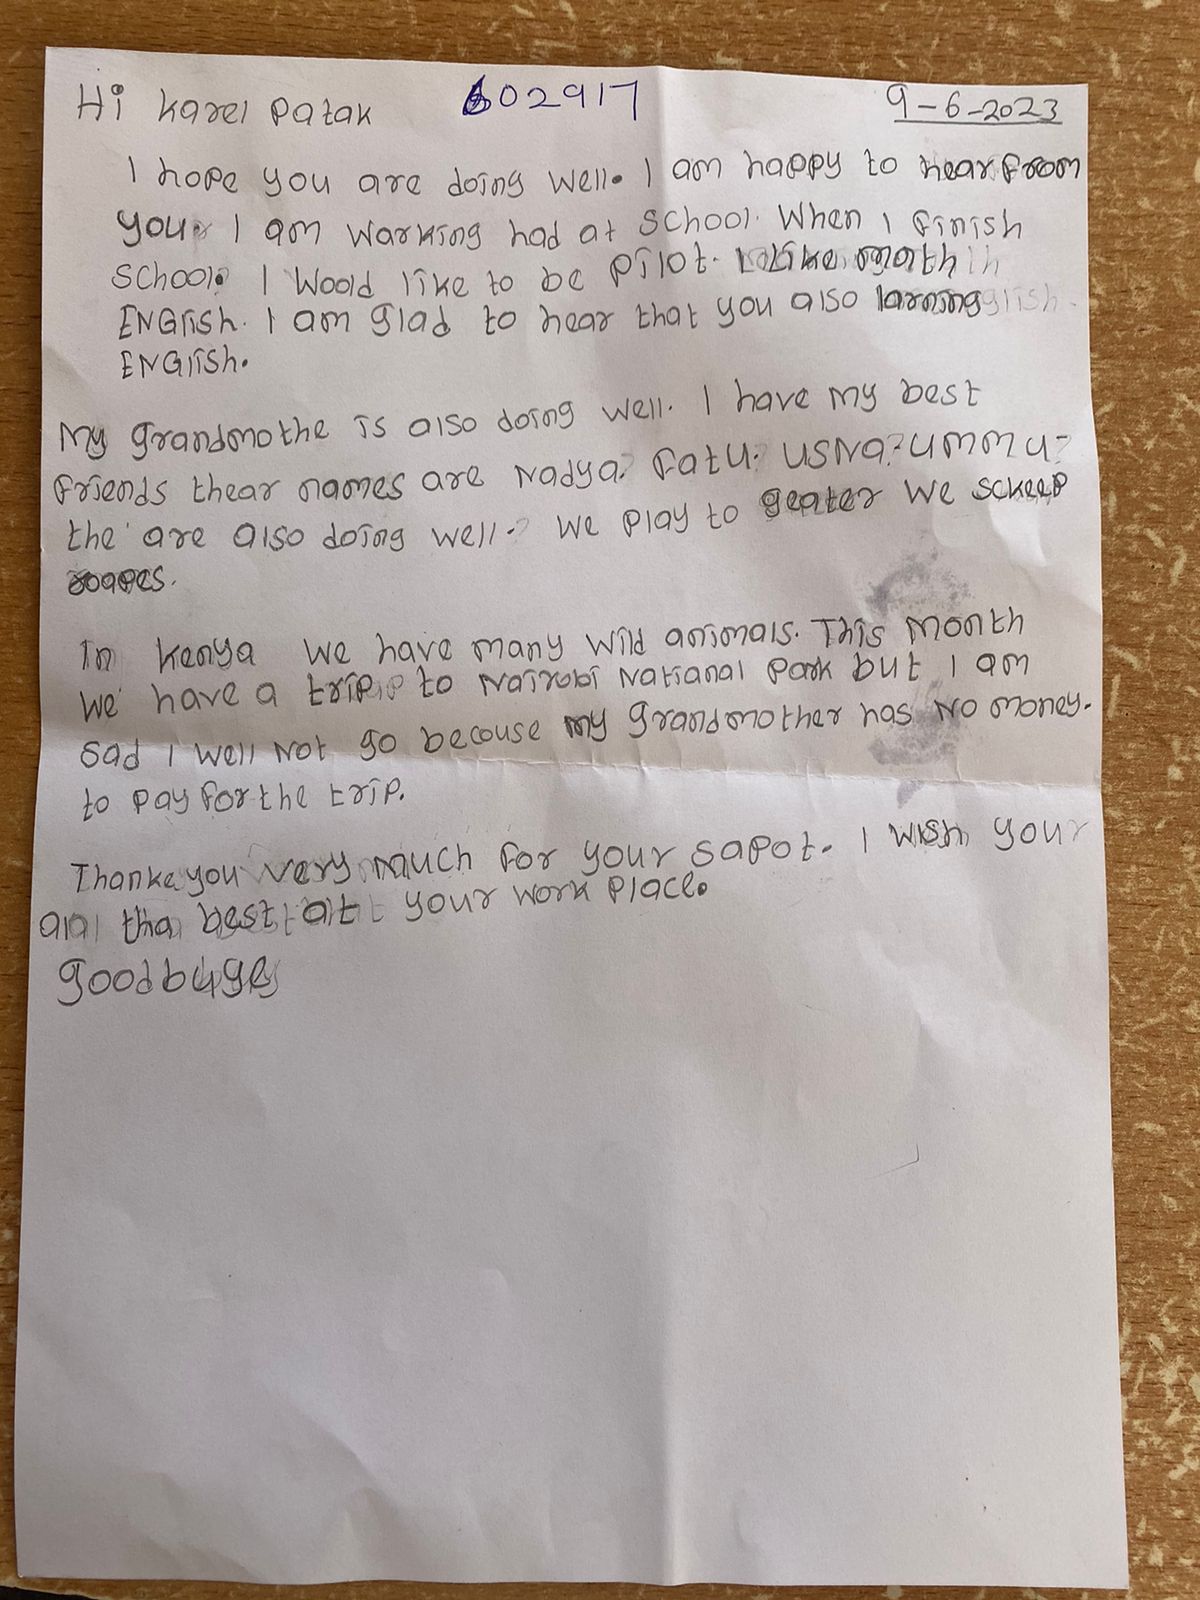 Hi Karel Patak 602917 9-6-2023
I hope you are doing well. I am happy to hear from
you. I am warking had at school. When I finish
school. I Woold like to be pilot. I Like math
ENGlish. I am glad to hear that you also larning
ENGlish.
My grandmothe is also doing well. I have my best
friends thear names are Nadya? Fatu? USNa? UMMU?
the are also doing well.? We play to geater We sckeep
roapes.
In Kenya We have many wild animals. This Month
We have a trip to Nairobi National Park but I am
sad I well Not go becouse my grandmother has No money.
to pay for the trip.
Thanke you very much for your sapot. I wish your
all tha best at your work place.
Goodbye